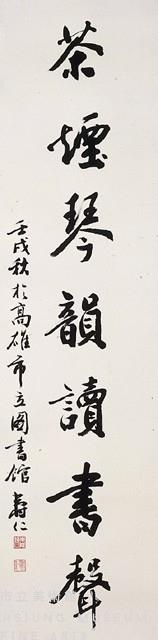 茶煙琴韻讀書聲
壬戌秋於高雄市立圖書館 壽仁